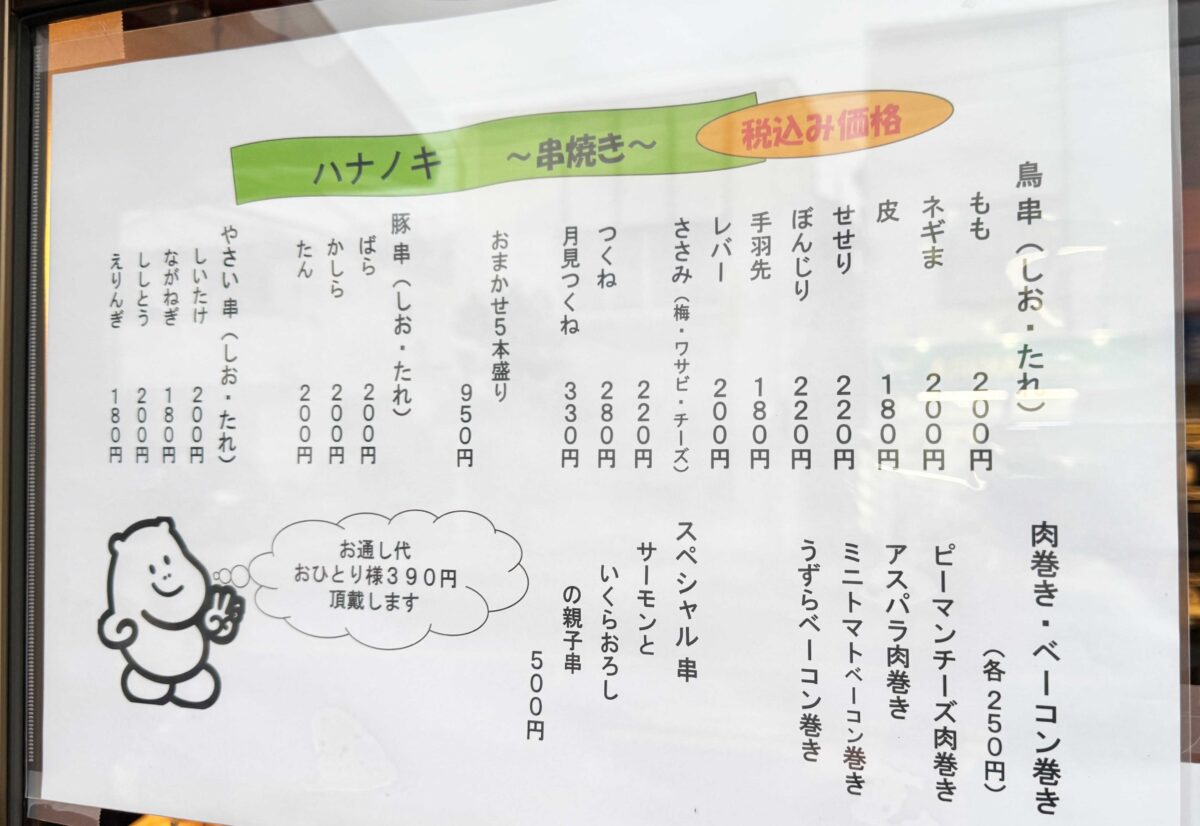 ハナノキ ～串焼き～
税込み価格
鳥串（しお・たれ）
もも 200円
ネギま 200円
皮 180円
せせり 220円
ぼんじり 220円
手羽先 180円
レバー 200円
ささみ（梅・ワサビ・チーズ）
220円
つくね 280円
月見つくね 330円
おまかせ5本盛り
950円
豚串（しお・たれ）
ばら 200円
かしら 200円
たん 200円
やさい串（しお・たれ）
しいたけ 200円
ながねぎ 180円
ししとう 200円
えりんぎ 180円
肉巻き・ベーコン巻き
（各250円）
ピーマンチーズ肉巻き
アスパラ肉巻き
ミニトマトベーコン巻き
うずらベーコン巻き
スペシャル串
サーモンと
いくらおろし
の親子串
500円
お通し代
おひとり様390円
頂戴します